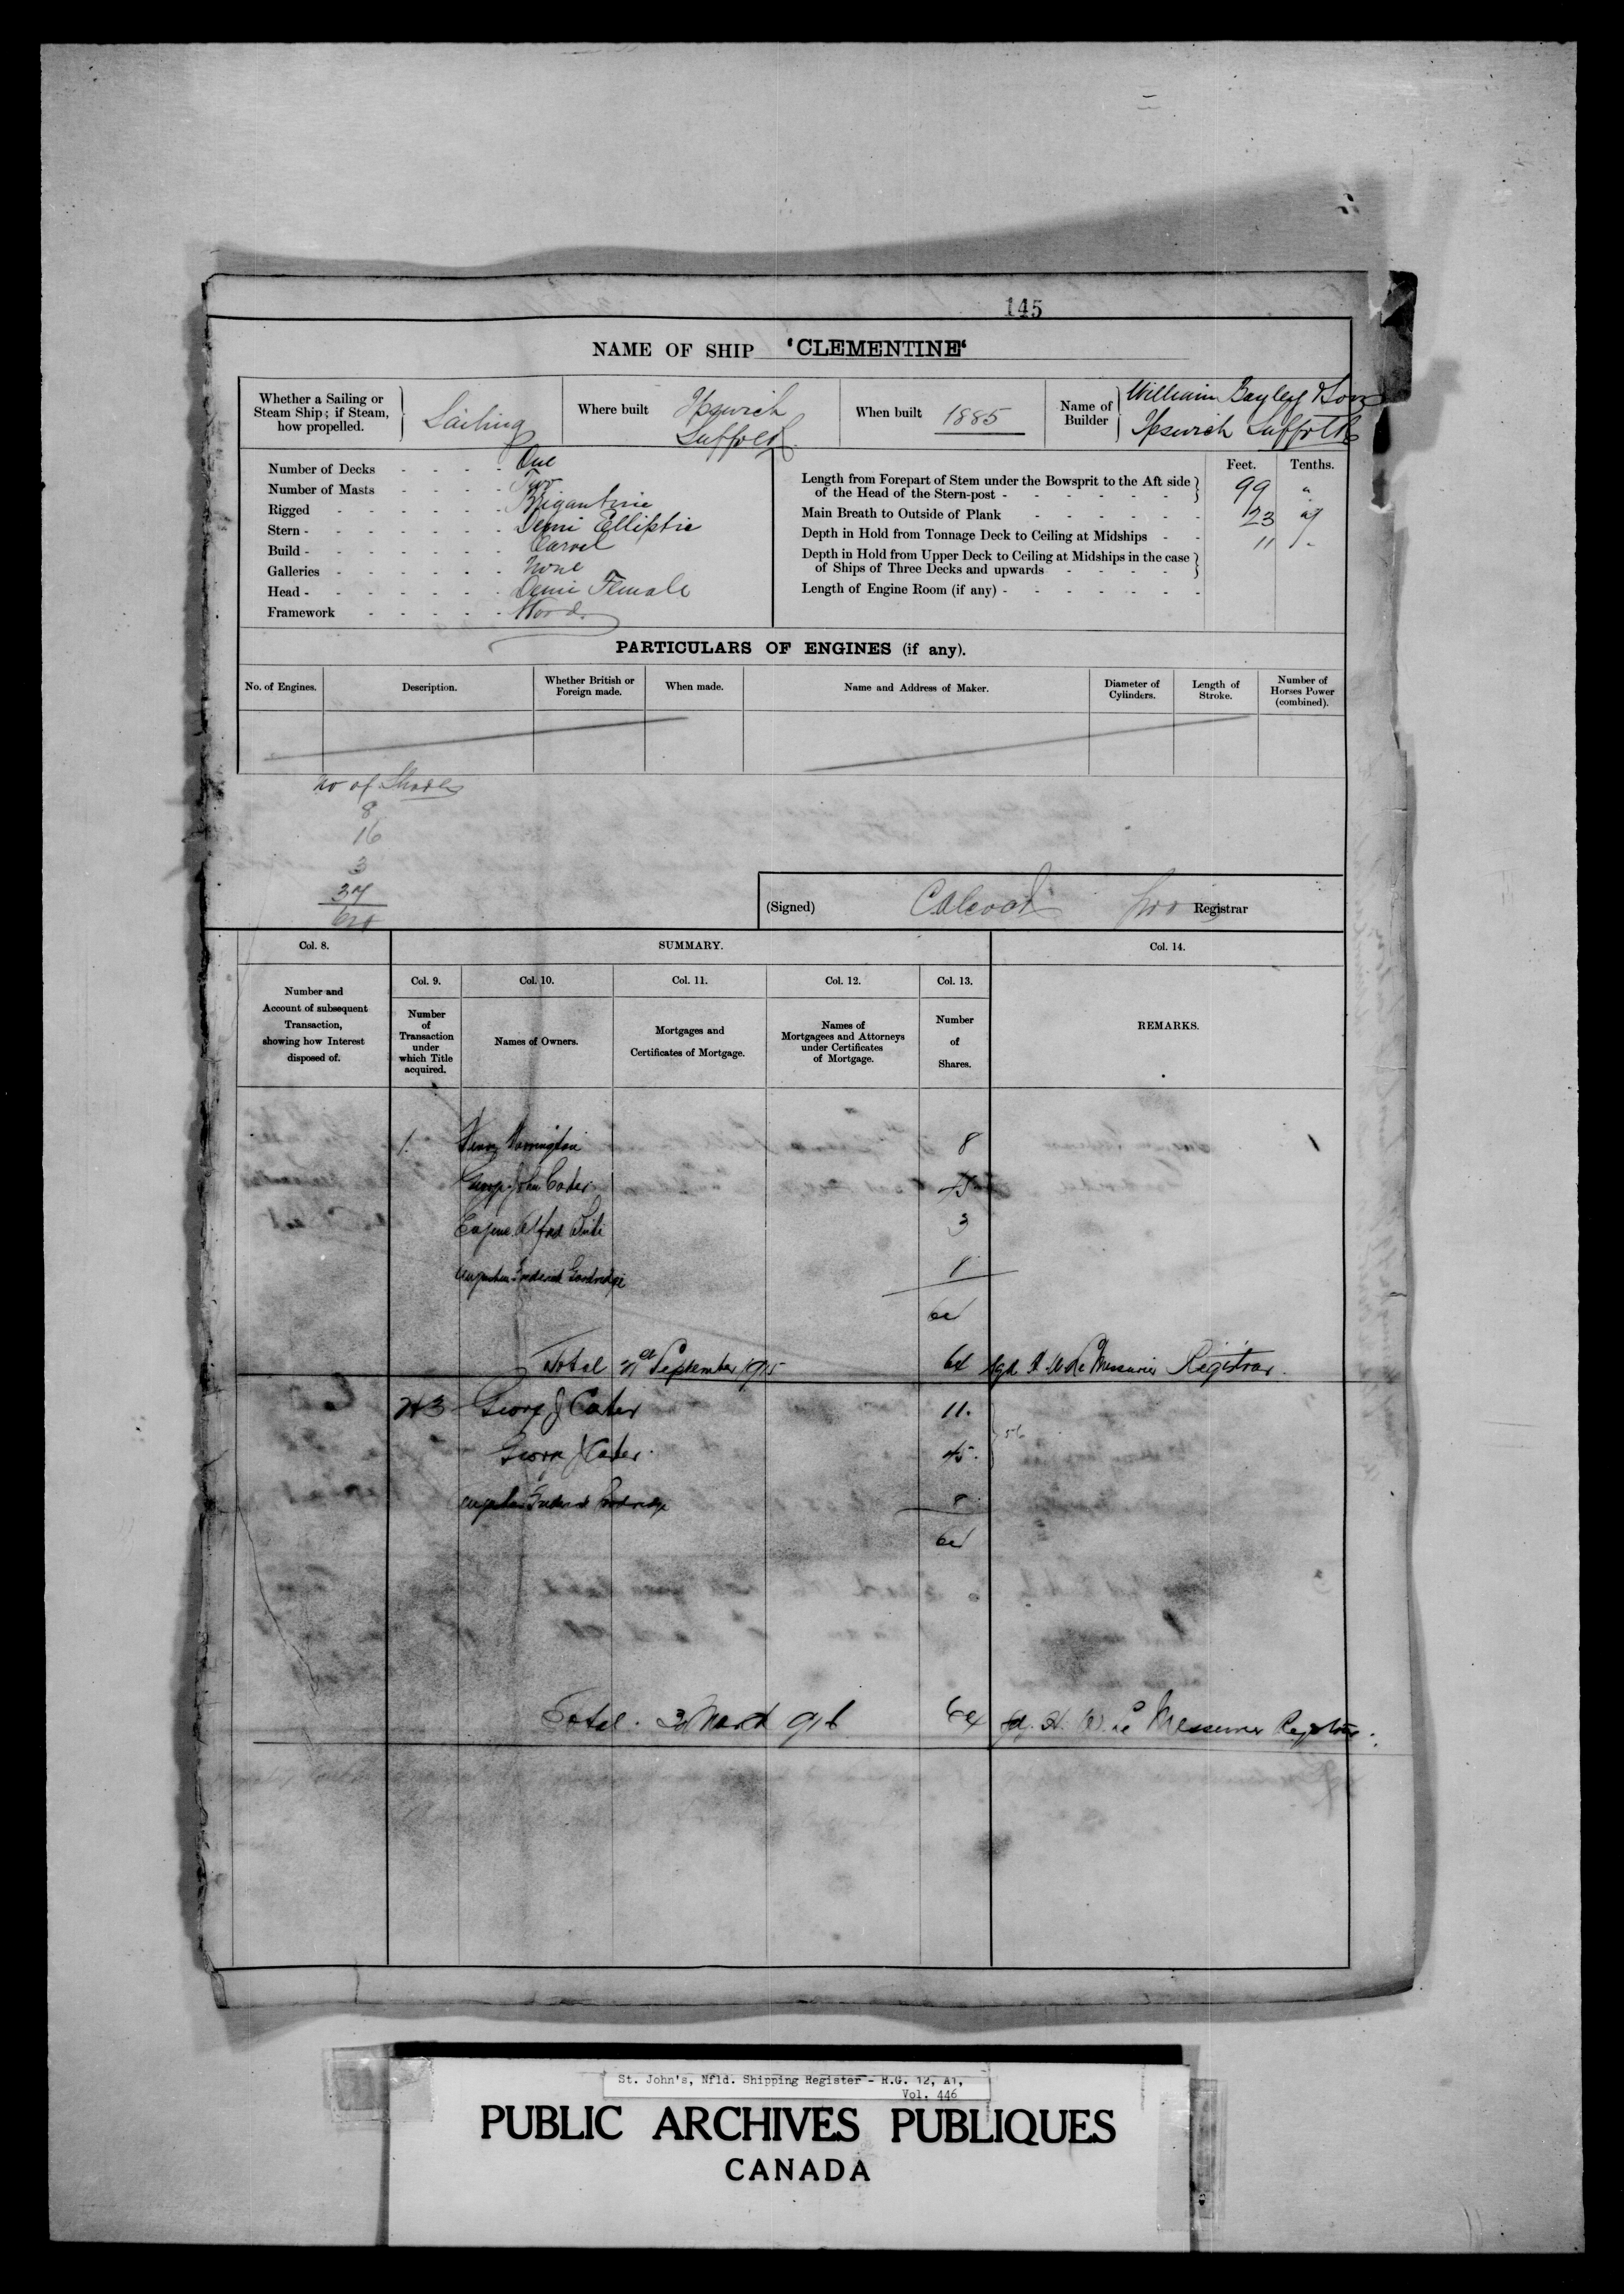 145
NAME OF SHIP 'CLEMENTINE'
Whether a Sailing or Steam Ship; if Steam, how propelled. Sailing
Where built Ipswich Suffolk
When built 1885
Name of Builder William Bayley & Sons Ipswich Suffolk
Number of Decks One
Number of Masts Two
Rigged Brigantine
Stern - Demi Elliptic
Build - Carvel
Galleries None
Head - Demi Female
Framework Wood
Feet. Tenths.
Length from Forepart of Stem under the Bowsprit to the Aft side of the Head of the Stern-post - 99 "
Main Breath to Outside of Plank 23
Depth in Hold from Tonnage Deck to Ceiling at Midships 11 -
Depth in Hold from Upper Deck to Ceiling at Midships in the case of Ships of Three Decks and upwards
Length of Engine Room (if any) -
PARTICULARS OF ENGINES (if any).
No. of Engines. Description. Whether British or Foreign made. When made. Name and Address of Maker. Diameter of Cylinders. Length of Stroke. Number of Horses Power (combined).
No of Shares
8
16
3
(Signed) Registrar
Col. 8. SUMMARY. Col. 14.
Number and Account of subsequent Transaction, showing how Interest disposed of.
Col. 9. Col. 10. Col. 11. Col. 12. Col. 13.
Number of Transaction under which Title acquired.
Names of Owners.
Mortgages and Certificates of Mortgage.
Names of Mortgagees and Attorneys under Certificates of Mortgage.
Number of Shares.
REMARKS.
1. Henry 8
George John Carter 45
Eugene Alfred 3
Augustus Frederick Goodridge 8
64
Total September 1915 64 Sgd H W Le Messurier Registrar.
2&3 George J Carter 11.
George J Carter. 45.
56
Augustus Frederick Goodridge 8
64
Total. March 916 64 Sgd. H. W. Le Messurier Registrar.
St. John's, Nfld. Shipping Register - R.G. 12, A1,
Vol. 446
PUBLIC ARCHIVES PUBLIQUES
CANADA